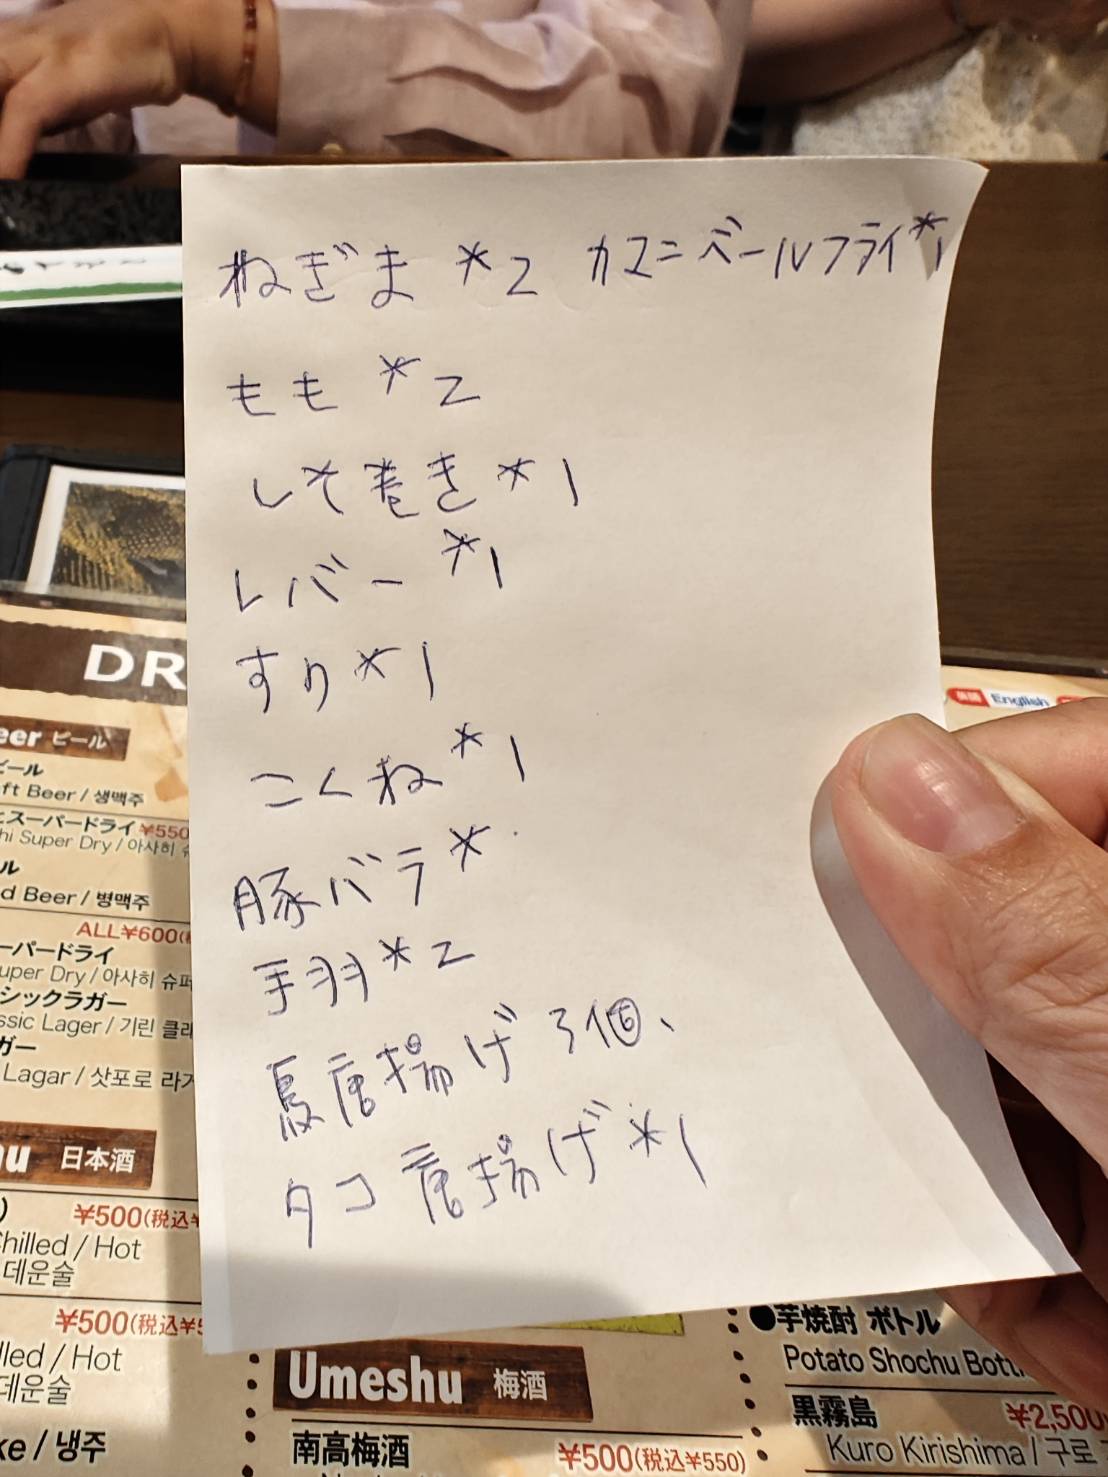 ねぎま *2 カマニベールフライ*1
もも *2
しそ巻き *1
レバー *1
すり*1
こくね*1
豚バラ*
手羽*2
鳥唐揚げ 3個、
タコ唐揚げ*1
English
DR
eer ビール
ビール
ft Beer / 생맥주
スーパードライ ¥550
hi Super Dry / 아사히
ル
d Beer / 병맥주
ALL¥600
ーパードライ
uper Dry / 아사히 슈퍼
シックラガー
ssic Lager / 기린 클래
ガー
Lagar / 삿포로 라거
日本酒
¥500(税込¥
Chilled / Hot
데운술
¥500(税込¥5
lled / Hot
데운술
ke / 냉주
Umeshu 梅酒
南高梅酒 ¥500(税込¥550)
●芋焼酎 ボトル
Potato Shochu Bott
黒霧島 ¥2,500
Kuro Kirishima / 구로